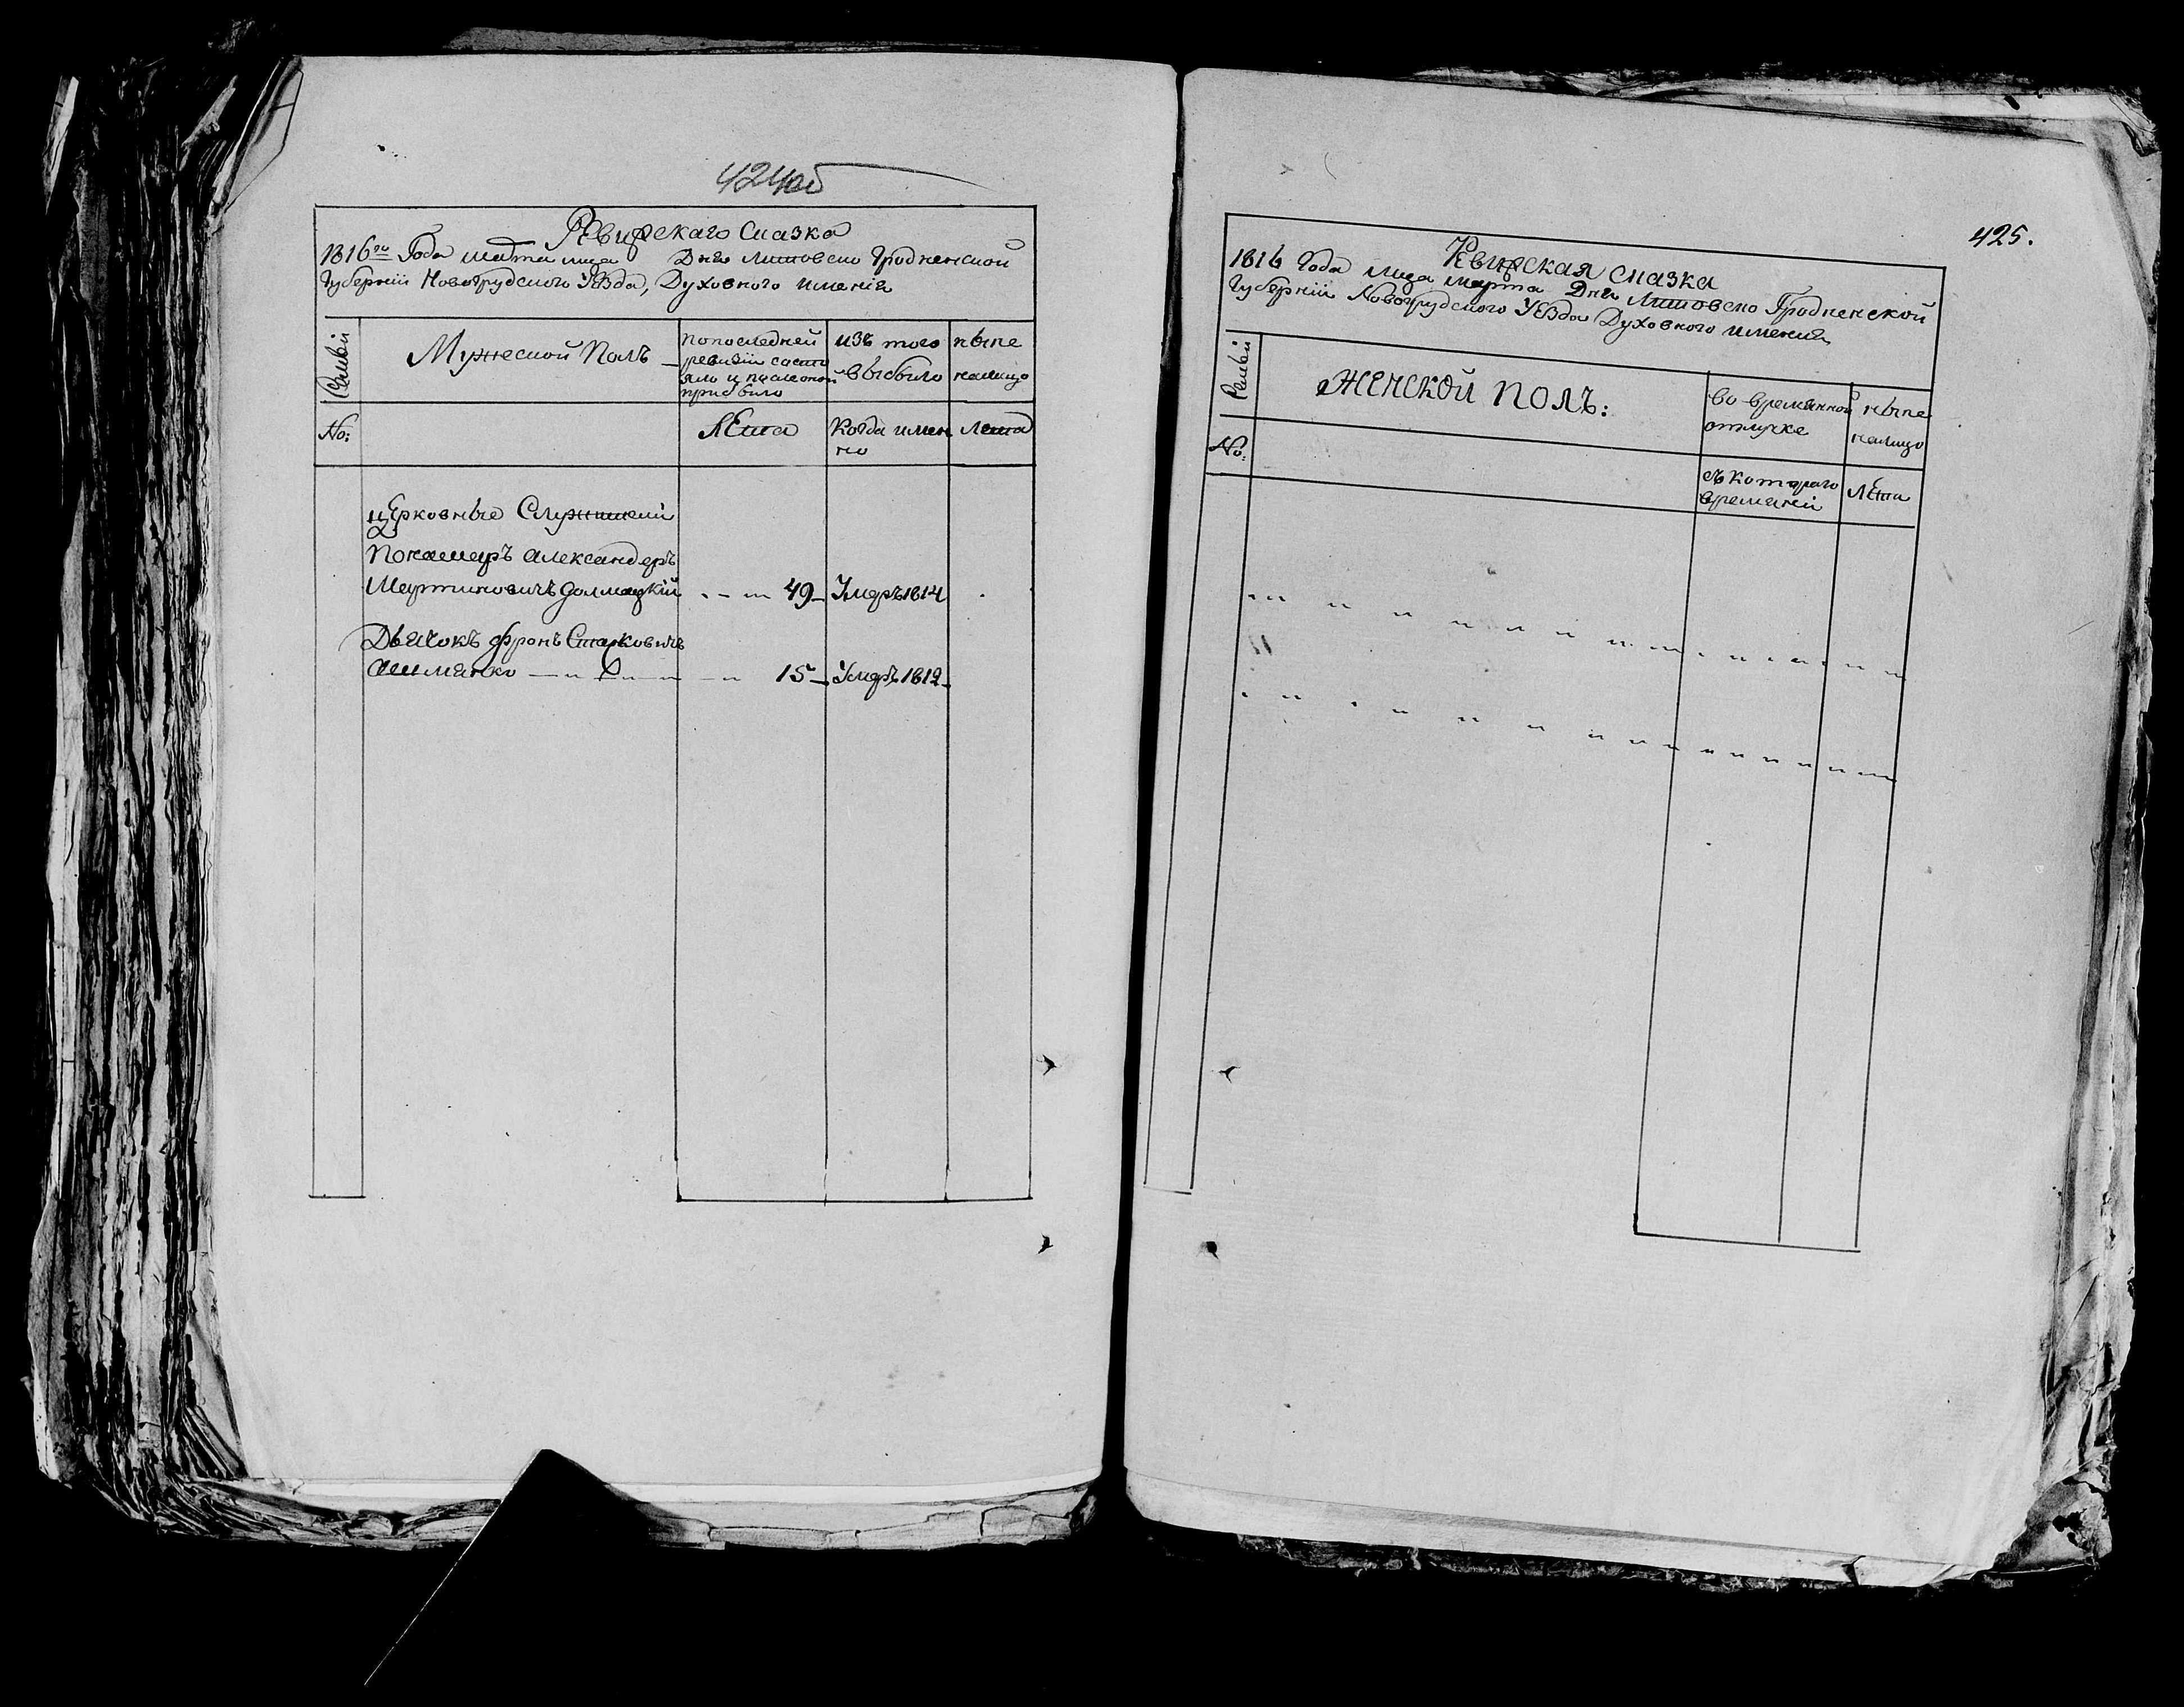 424об
Ревизскаго Сказка
1816го Года марта мца Дня Литовско Гродненской
Губернии Новогрудского Уезда, Духовного имения
Семьи
Мужеской Полъ
по последней
ревизии состо
яло и после оной
прибыло
изъ того
выбыло
ныне
налицо
No:
Лета
Когда имен
но
Лета
церковные Служители
Пономаръ Александеръ
Мартиновичъ 49 Умеръ 1814
Дьячокъ
15 Умеръ 1812
425.
Ревизская сказка
1816 Года мца марта Дня Литовско Гродненской
Губернии Новогрудского Уезда Духовного имения
Семьи
Женской полъ:
во временной
отлучке
ныне
налицо
No:
съ котораго
времени
Лета